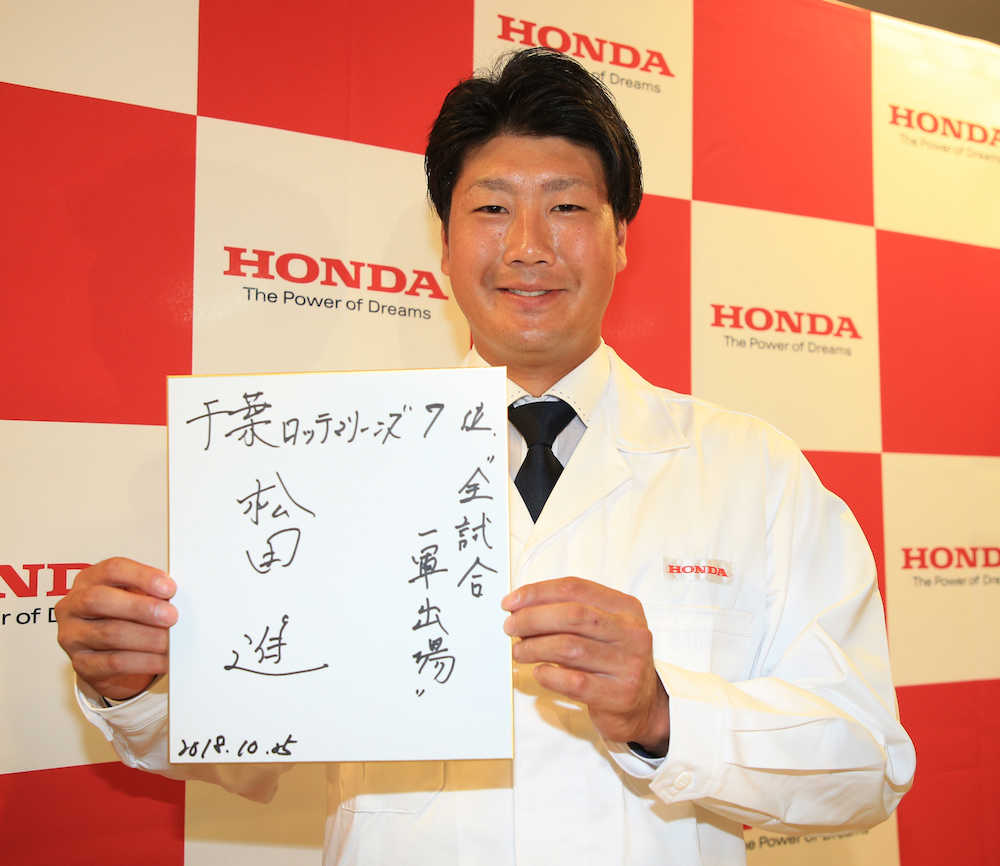 HONDA
The Power of Dreams
HONDA
The Power of Dreams
HONDA
The Power of Dreams
HONDA
The Power of Dreams
HONDA
The Power of Dreams
千葉ロッテマリーンズ7位
"全試合
一軍出場"
松田
進
2018.10.25
HONDA